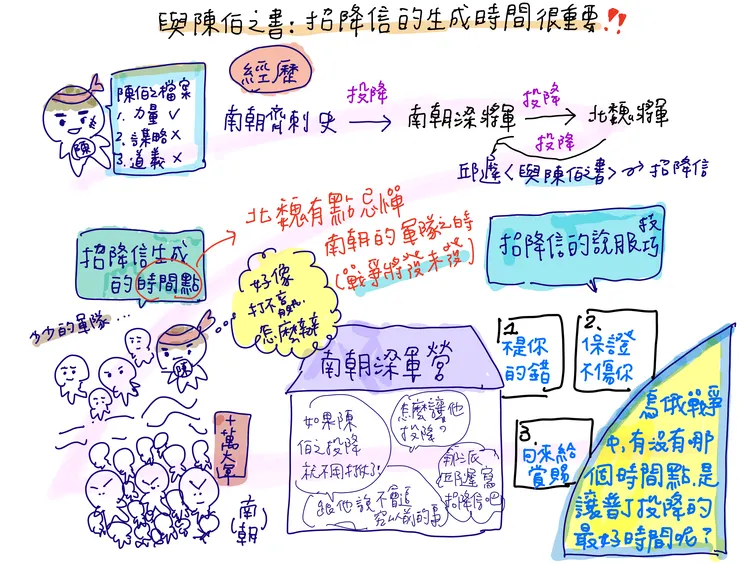 與陳伯之書:招降信的生成時間很重要!!
陳伯之檔案
1.力量✓
2.謀略×
3.道義×
陳
經歷
南朝齊刺史
投降
南朝梁將軍
投降
北魏將軍
投降
邱遲〈與陳伯之書〉
招降信
招降信生成
的時間點
北魏有點忌憚
南朝的軍隊之時
(戰爭將發未發)
招降信的說服技巧
少少的軍隊...
陳
好像
打不贏
怎麼辦
十萬大軍
南(朝)
南朝梁軍營
如果陳
伯之投降
就不用打了!
怎麼讓他
投降?
那派
邱遲寫
招降信吧
跟他說不會追
究以前的事
1.
不是你
的錯
2.
保證
不傷你
3.
回來給
賞賜
烏俄戰爭
中,有沒有哪
個時間點,是
讓普丁投降的
最好時間呢?